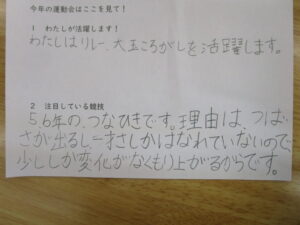 今年の運動会はここを見て！
1 わたしが活躍します！
わたしはリレー、大玉ころがしを活躍します。
2 注目している競技
5、6年の、つなひきです。理由は、つば
さが出るし、一才さしかはなれていないので
少ししか変化がなくもり上がるからです。